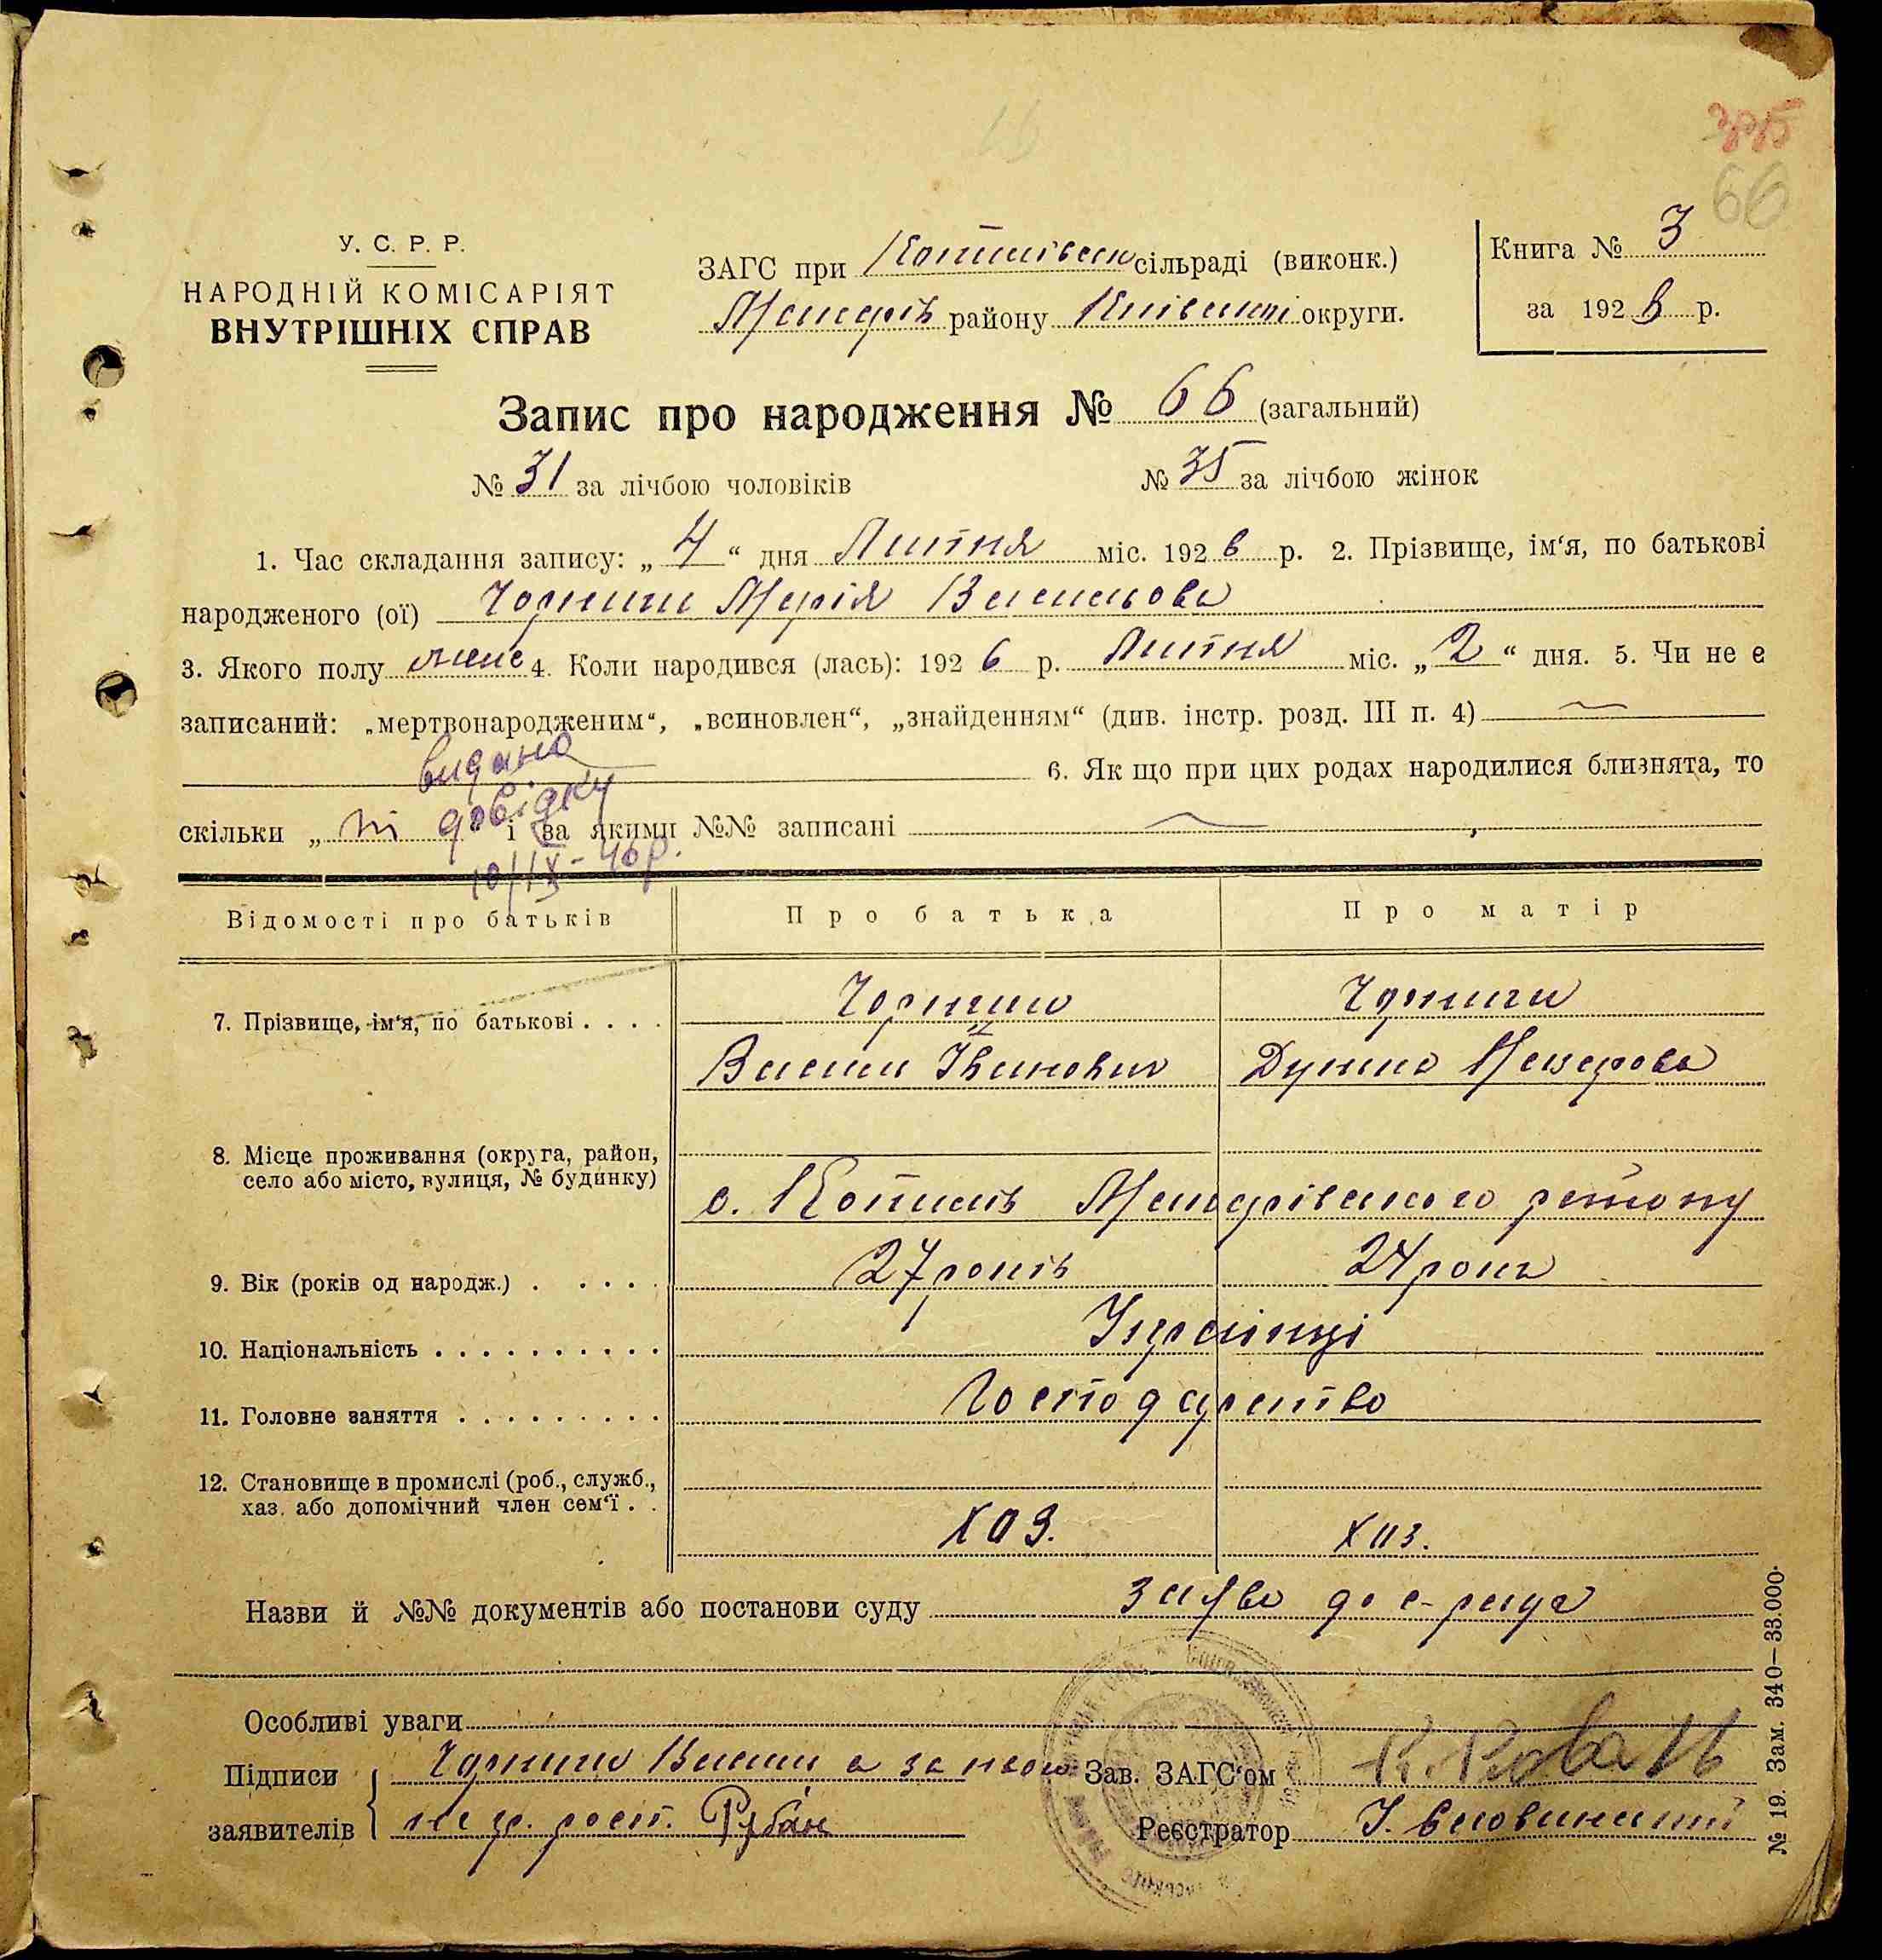 66
У. С. Р. Р.
НАРОДНІЙ КОМІСАРІЯТ
ВНУТРІШНІХ СПРАВ
ЗАГС при сільраді (виконк.)
району округи.
Книга № 3
за 1926 р.
Запис про народження № 66 (загальний)
№ 31 за лічбою чоловіків № 35 за лічбою жінок
1. Час складання запису: „4“ дня Липня міс. 1926 р. 2. Прізвище, ім‘я, по батькові
народженого (ої) Марія Василова
3. Якого полу жіне 4. Коли народився (лась): 1926 р. Липня міс. „2“ дня. 5. Чи не є
записаний: „мертвонародженим“, „всиновлен“, „знайденням“ (див. інстр. розд. III п. 4)
видано
6. Як що при цих родах народилися близнята, то
довідку
скільки „ ні “ і за якими №№ записані
10/IX-46р.
Відомості про батьків Про батька Про матір
7. Прізвище, ім‘я, по батькові . . . .
Василь Іванович
8. Місце проживання (округа, район,
село або місто, вулиця, № будинку)
с. району
9. Вік (років од народж.) . . . . . 27 років 24 роки
10. Національність . . . . . . . . . . Українці
11. Головне заняття . . . . . . . . . Господарство
12. Становище в промислі (роб., служб.,
хаз. або допомічний член сем‘ї . .
хаз. хаз.
Назви й №№ документів або постанови суду заява до с-ради
Особливі уваги
Підписи Василь а за його Зав. ЗАГС‘ом
заявителів рост. Рубан Реєстратор
№ 19. Зам. 340—33.000.